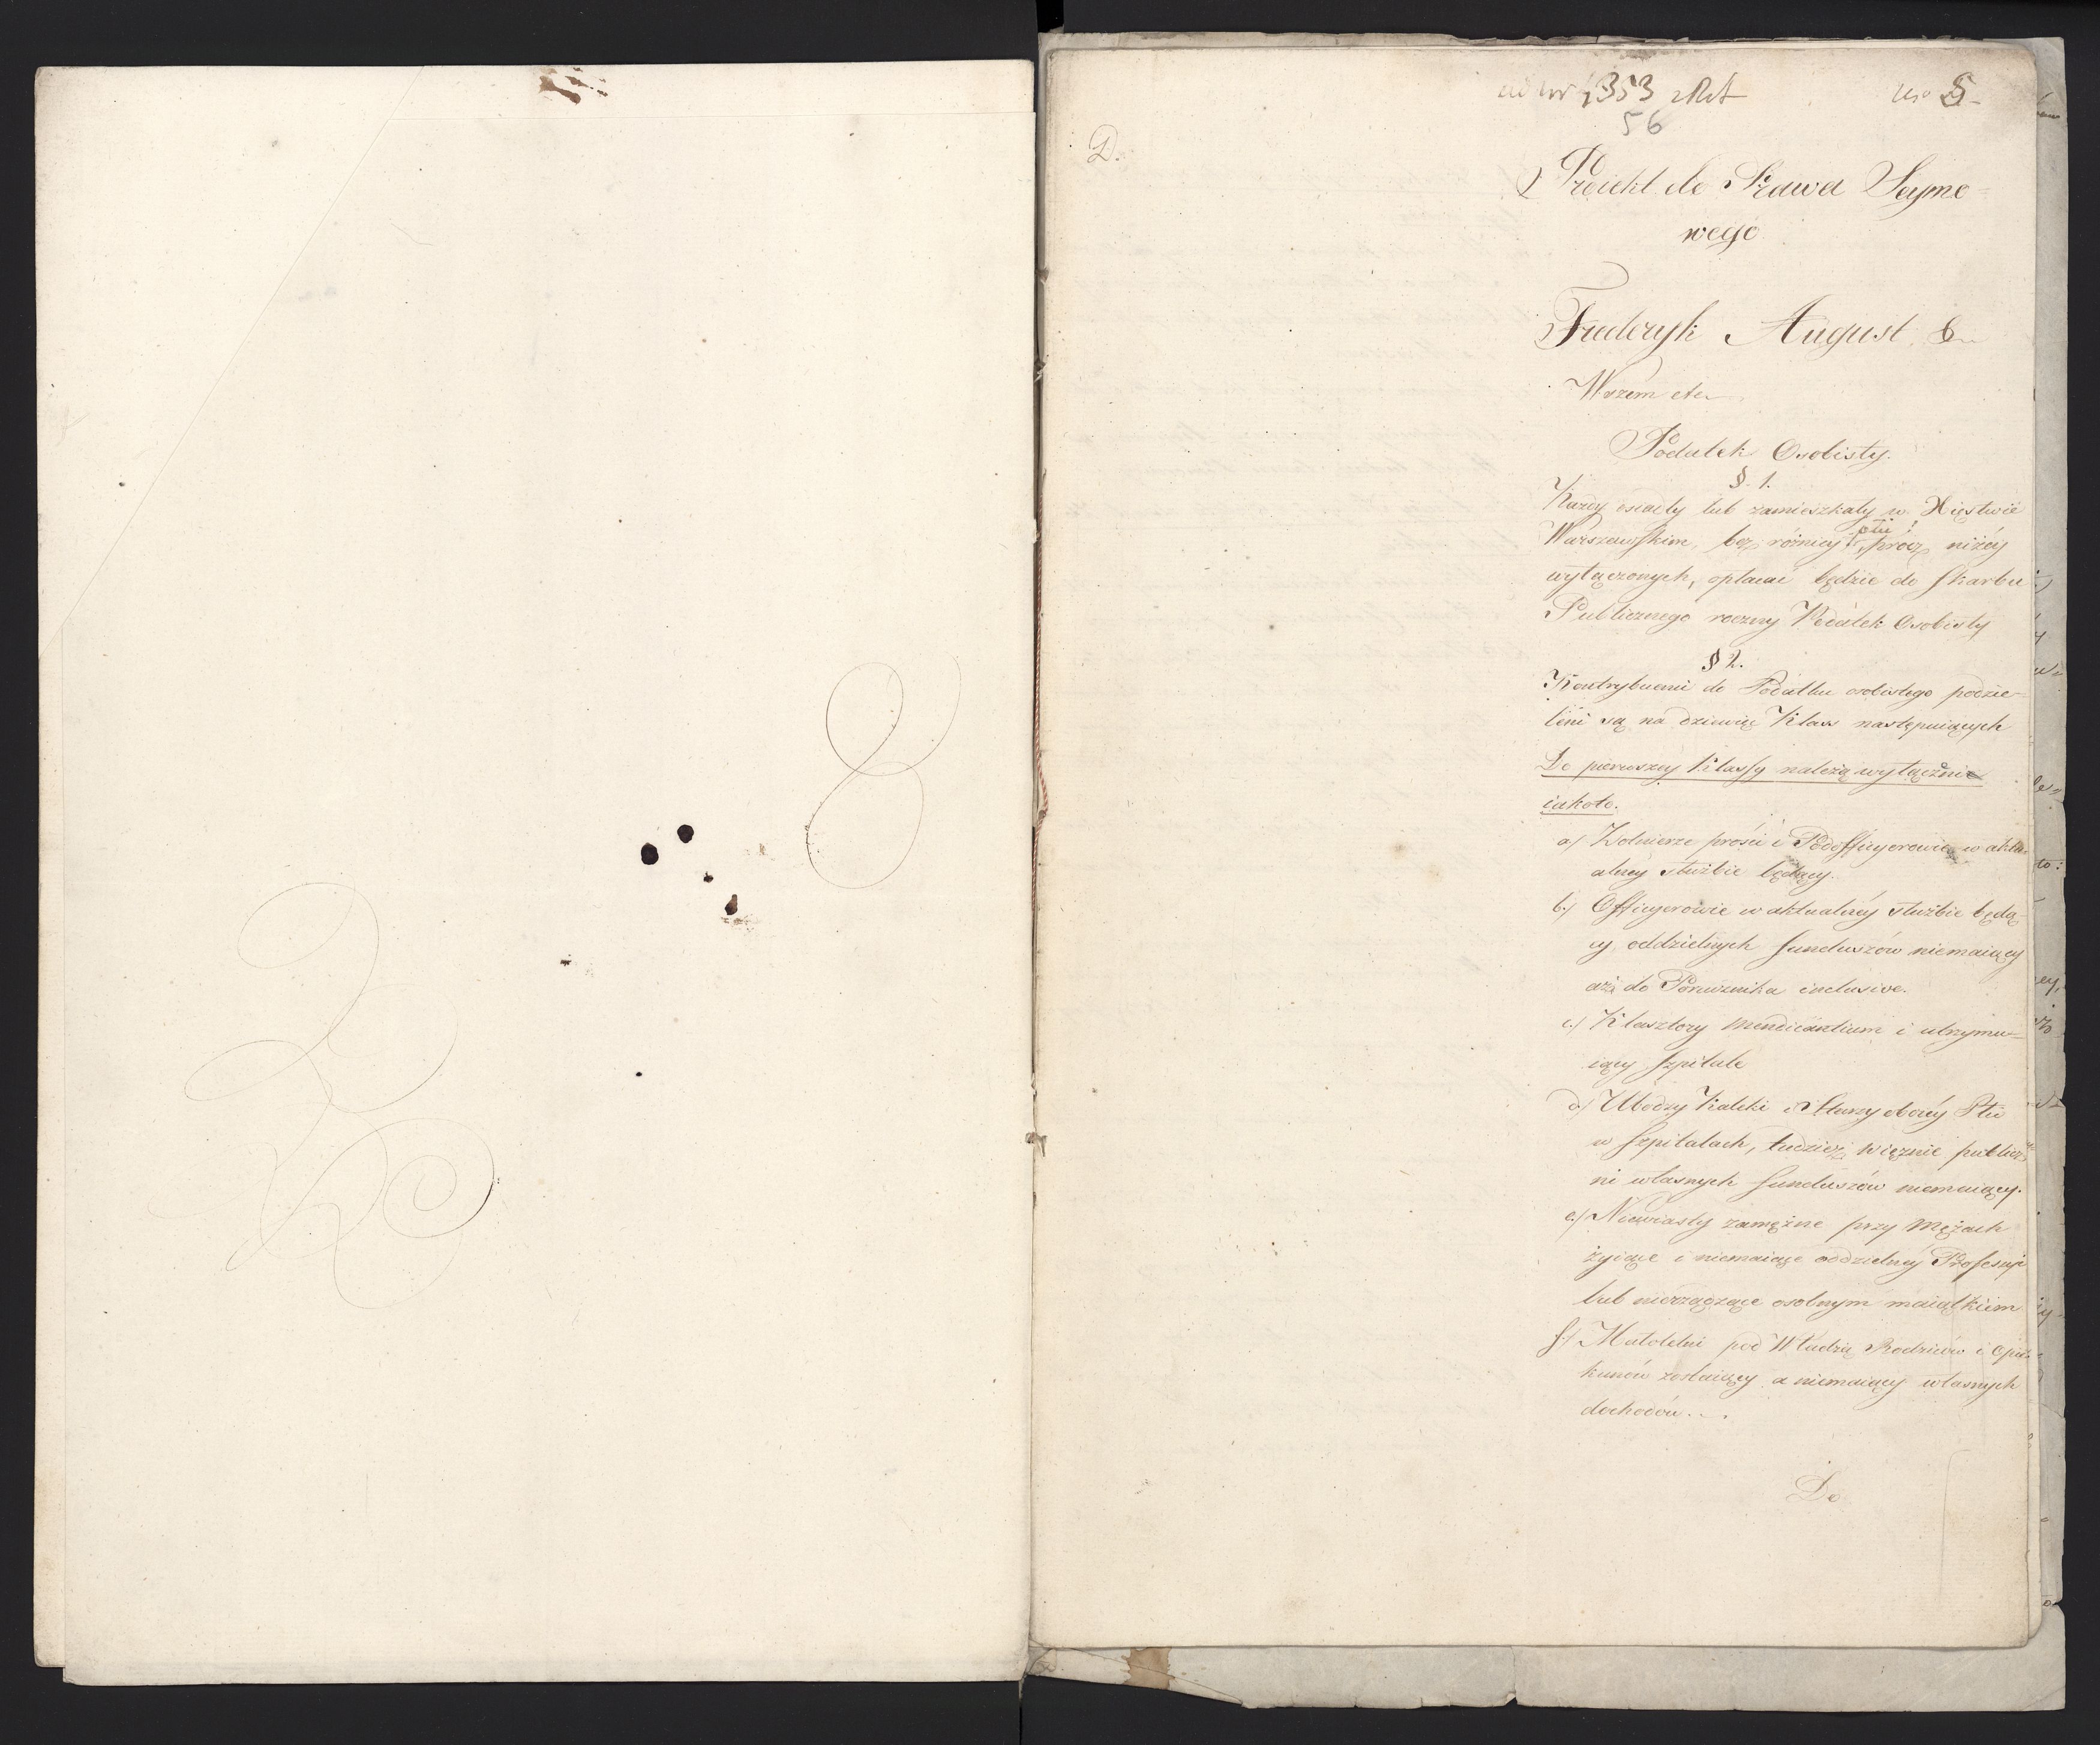 ad Nr 1353
56
No 5
D.
Proiekt do Prawa Seymo-
wego
Frederyk August, &
Wszem etc
Podatek Osobisty.
§. 1.
Każdy osiadły lub zamieszkały w Xięstwie
Warszawskim, bez różnicy płci, procz niżéy
wyłączonych, opłacać będzie do Skarbu
Publicznego roczny Podatek Osobisty
§ 2.
Kontrybuenci do Podatku osobistego podzie-
leni są na dziewięć Klass następuiących
Do pierwszey Klassy należą wyłącznie
iakoto.
a) Żołnierze prości i Podofficyerowie w aktu-
alnéy służbie będący.
b.) Officyerowie w aktualnéy służbie będą-
cy, oddzielnych funduszów niemaiący
aż do Porucznika inclusive.
c.) Klasztory Mendicantium i utrzymu=
iący Szpitale
d.) Ubodzy Kaleki i Starzy oboiéy Płci
w Szpitalach, tudzież Więznie publicz-
ni własnych funduszów niemaiący.
e.) Niewiasty zamężne przy Mężach
żyiące i niemaiące oddzielnéy Professyi
lub nierządzące osobnym maiątkiem
f.) Małoletni pod Władzą Rodziców i Opie-
kunów zostaiący a niemaiący własnych
dochodów.
Do